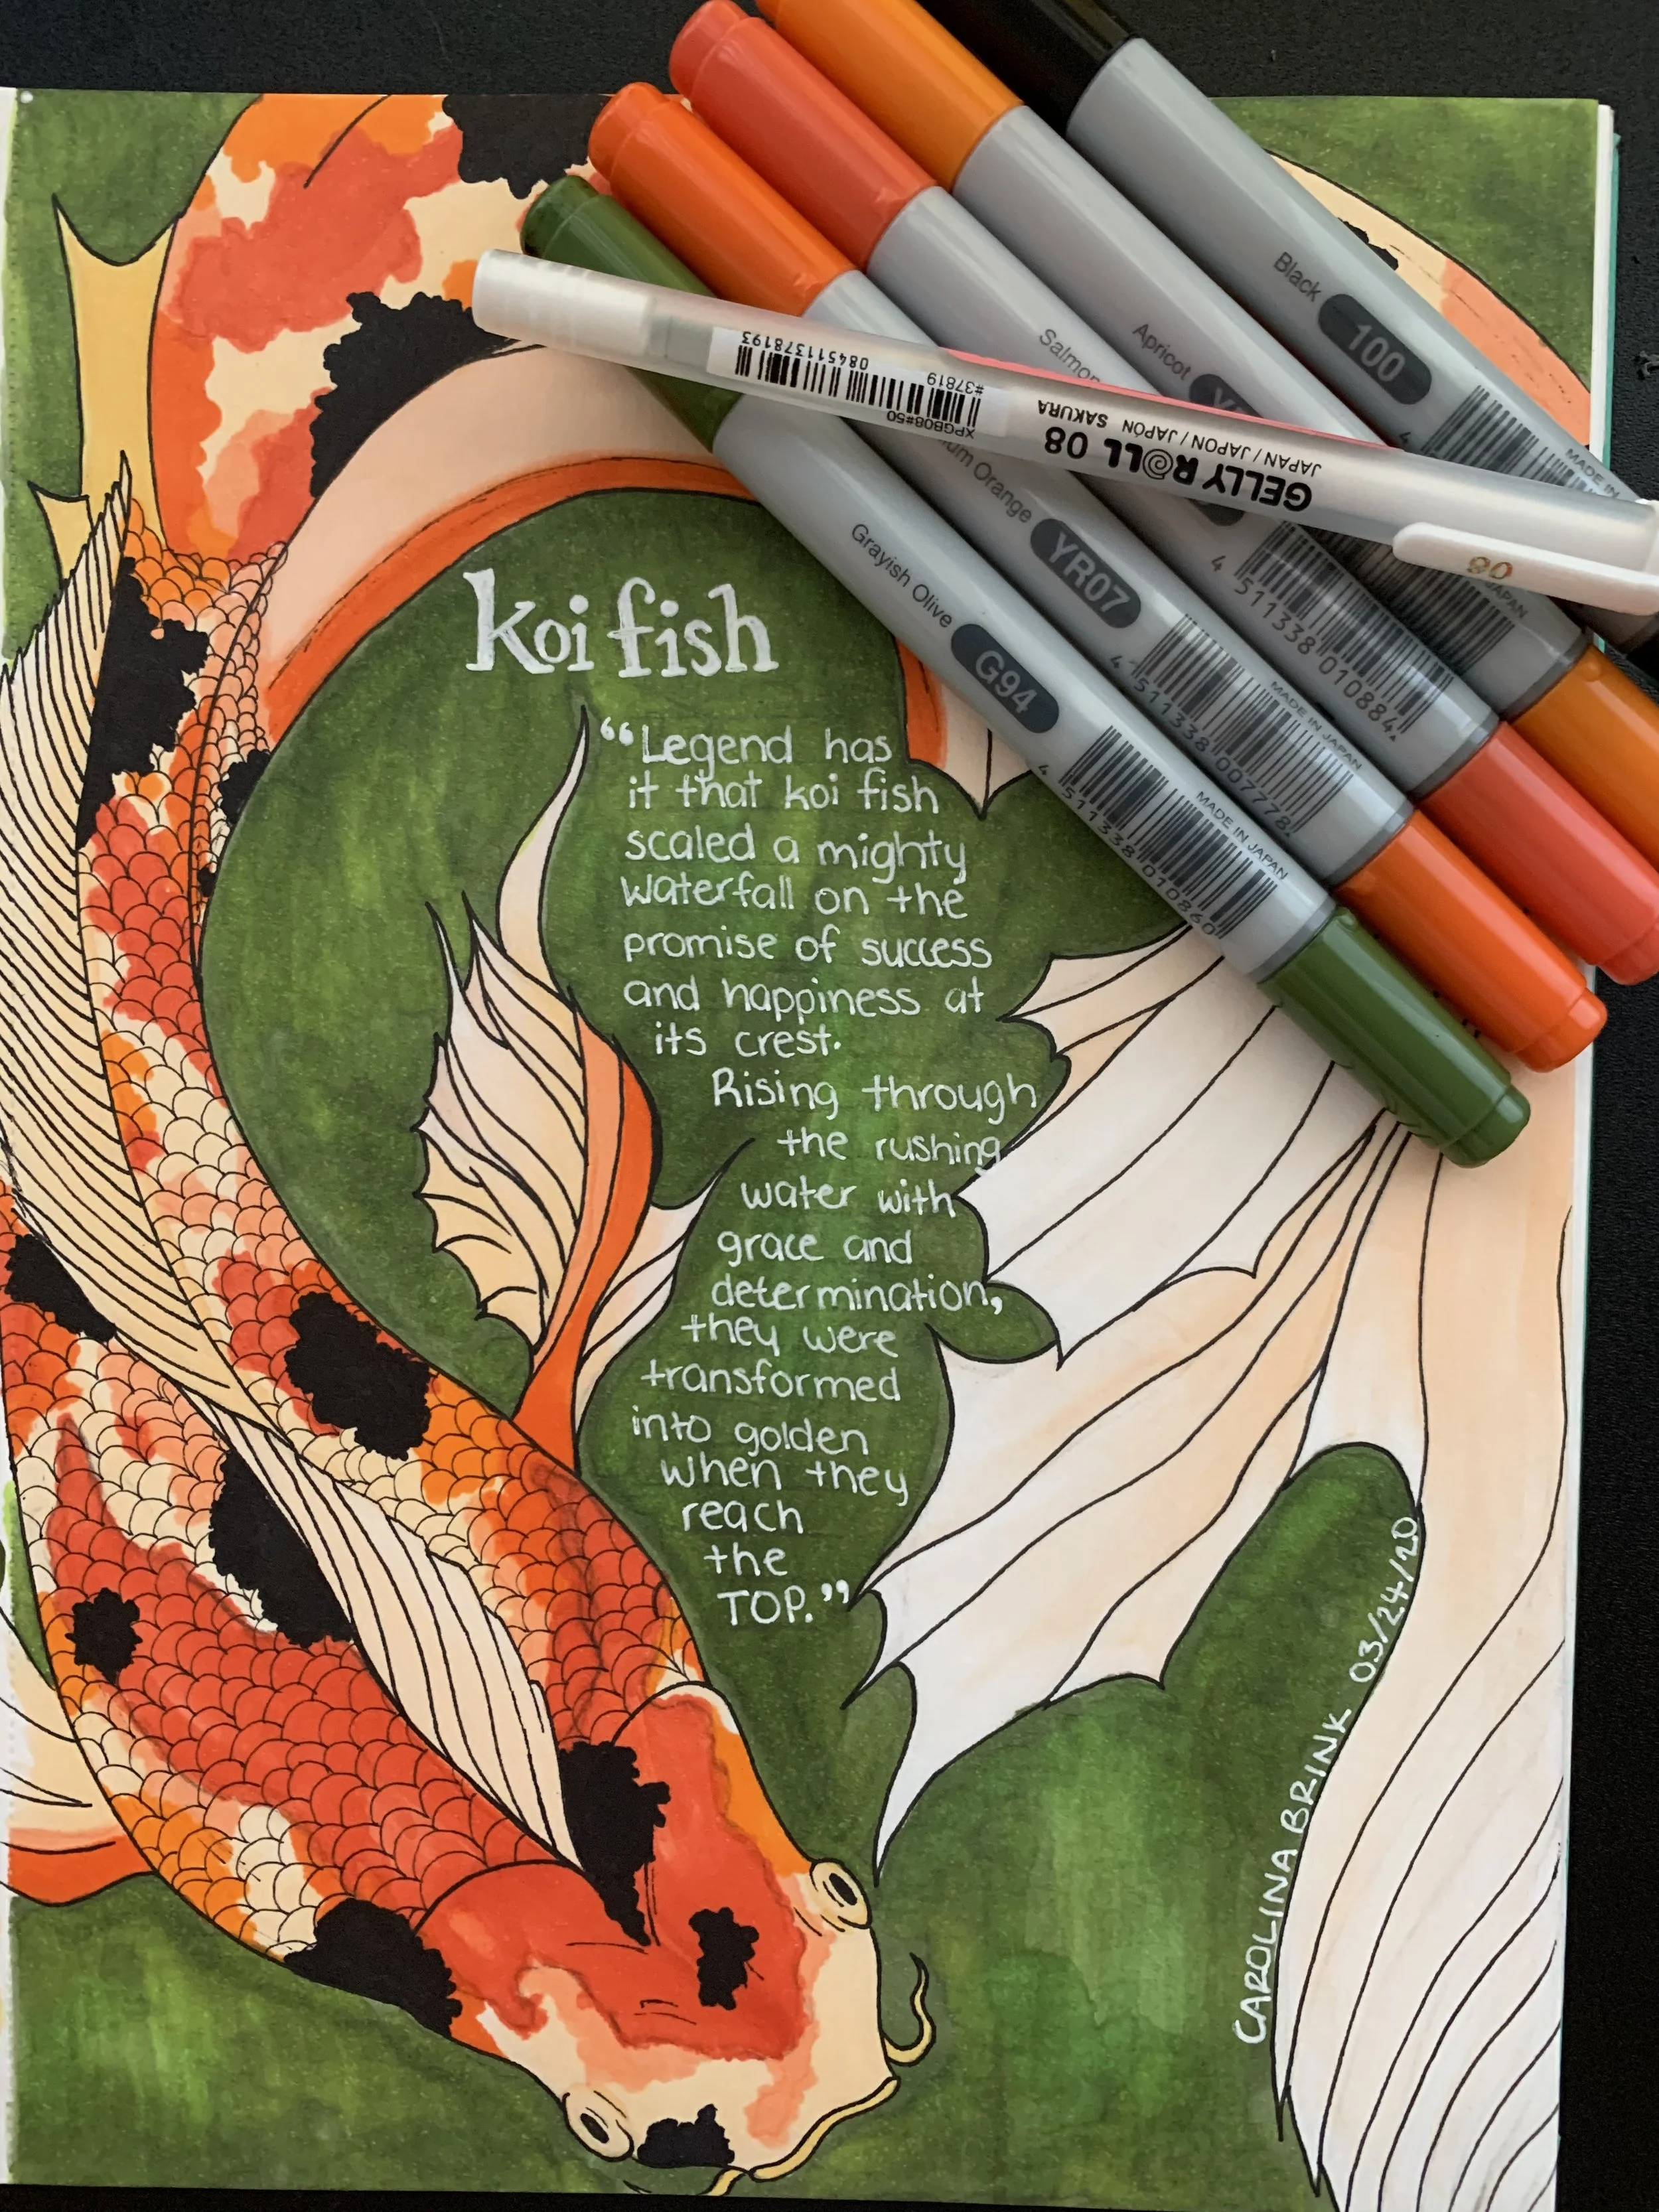 koi fish
“Legend has
it that koi fish
scaled a mighty
waterfall on the
promise of success
and happiness at
its crest.
Rising through
the rushing
water with
grace and
determination,
they were
transformed
into golden
when they
reach
the
TOP.”
CAROLINA BRINK 03/24/20
Black 100
MADE IN
Apricot
Salmon
4 511338 010884
JAPAN
Orange YR07
4 511338 007778
MADE IN JAPAN
Grayish Olive G94
4 511338 010860
MADE IN JAPAN
GELLY ROLL 08
JAPAN / JAPON / JAPÓN SAKURA
XPGB08#50
#37819
084511378193
08